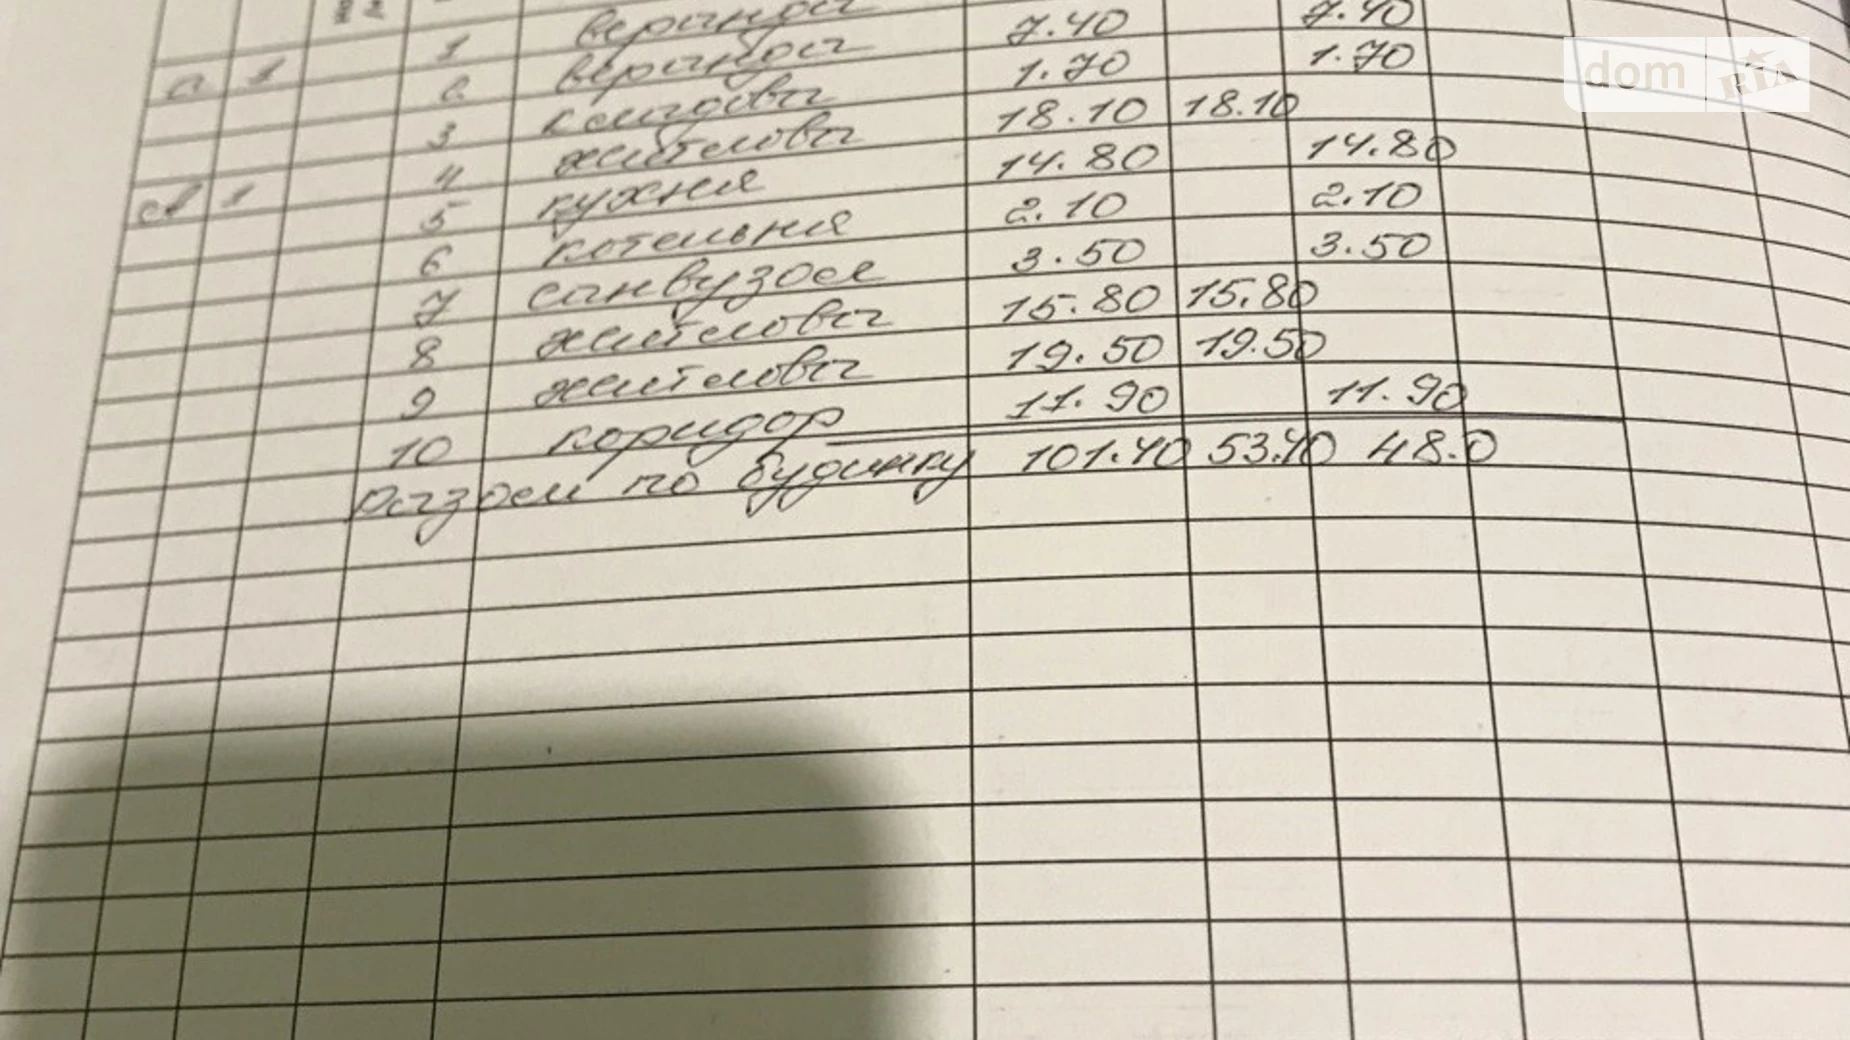 а 1 1 веранда
2 веранда 7.40 7.40
3 кладова 1.70 1.70
А 1 4 житлова 18.10 18.10
5 кухня 14.80 14.80
6 котельня 2.10 2.10
7 санвузол 3.50 3.50
8 житлова 15.80 15.80
9 житлова 19.50 19.50
10 коридор 11.90 11.90
Разом по будинку 101.40 53.40 48.0
dom RIA